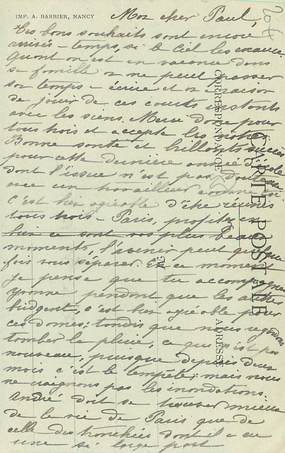 IMP. A. BARBIER, NANCY
Mon cher Paul,
Tes bons souhaits sont encore
arrivés à temps, si le Ciel les exauce.
Quand on est en vacance dans
sa famille on ne peut passer
son temps à écrire et on a raison
de jouir de ces courts instants
avec les siens. Merci donc pour
tous trois et accepte les nôtres
Bonne santé et brillants succès
pour cette dernière année d'école
dont l'issue n'est pas douteuse
avec un travailleur comme toi
C'est bien agréable d'être réunis
tous trois à Paris, profitez en
car ce sont vos plus beaux
moments, l'avenir peut quelque
fois vous séparer. En ce moment
je pense que tu accompagnes
Yvonne pendant que les autres
bûchent, c'est bien agréable pour
ces dames; tandis que nous regardons
tomber la pluie, ce qui n'est pas
nouveau, puisque depuis deux
mois c'est la tempête; mais nous
ne craignons pas les inondations.
André doit se trouver mieux
de la vie de Paris que de
celle des tranchées dont il a eu
une si large part
CARTE POSTALE
CORRESPONDANCE
ADRESSE